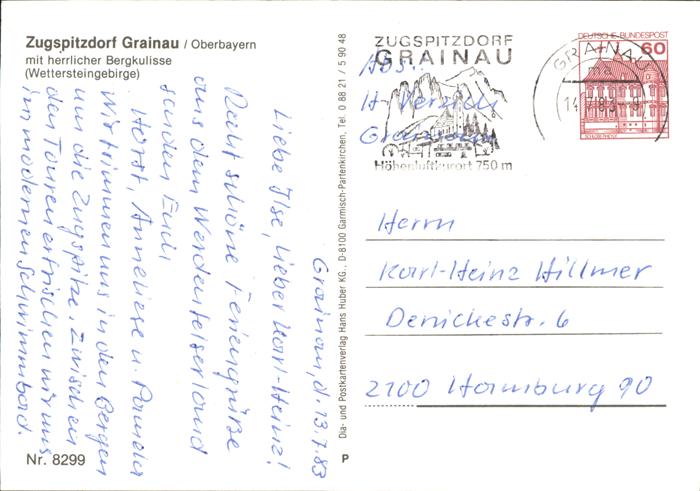 Zugspitzdorf Grainau / Oberbayern
mit herrlicher Bergkulisse
(Wettersteingebirge)
Grainau, d. 13.7.83
Liebe Ilse, lieber Karl-Heinz!
Recht schöne Feriengrüße
aus dem Werdenfelserland
senden Euch
Horst, Anneliese u. Pamela
Wir trimmen uns in den Bergen
um die Zugspitze. Zwischen
den Touren erfrischen wir uns
im modernen Schwimmbad.
Nr. 8299
Dia- und Postkartenverlag Hans Huber KG., D-8100 Garmisch-Partenkirchen, Tel. 0 88 21 / 5 90 48
P
ZUGSPITZDORF
GRAINAU
Höhenluftkurort 750 m
Abs.:
H.
Grainau
GRAINAU
ma
DEUTSCHE BUNDESPOST
60
Herrn
Karl-Heinz Hillmer
Denickestr. 6
2100 Hamburg 90